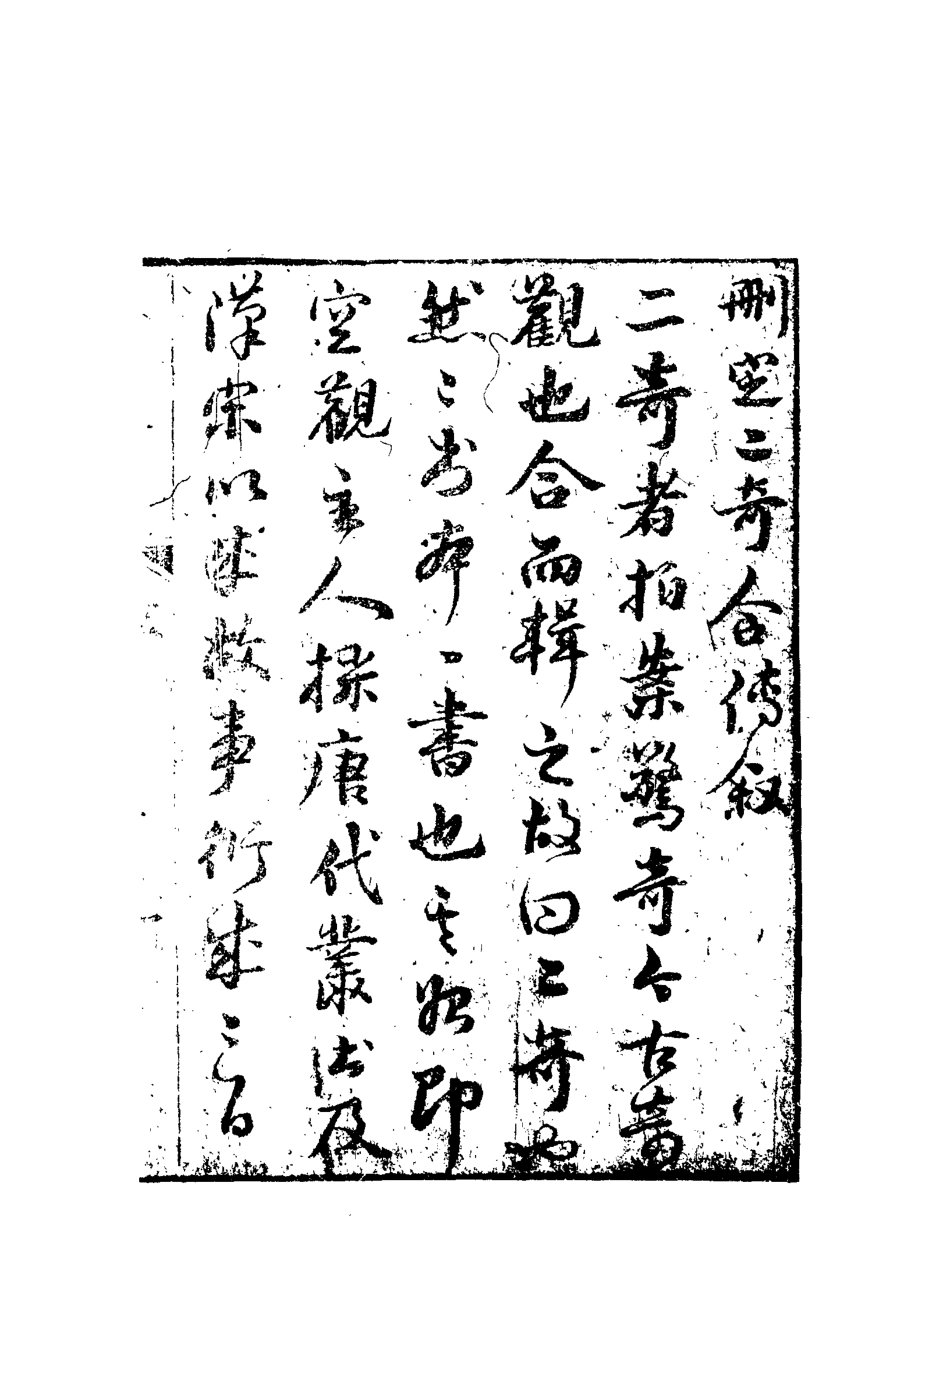 刪定二奇合傳敘
二奇者拍案驚奇今古奇
觀也合而輯之故曰二奇也
然二書本一書也其始即
空觀主人採唐代叢書及
漢宋以來故事衍成二百